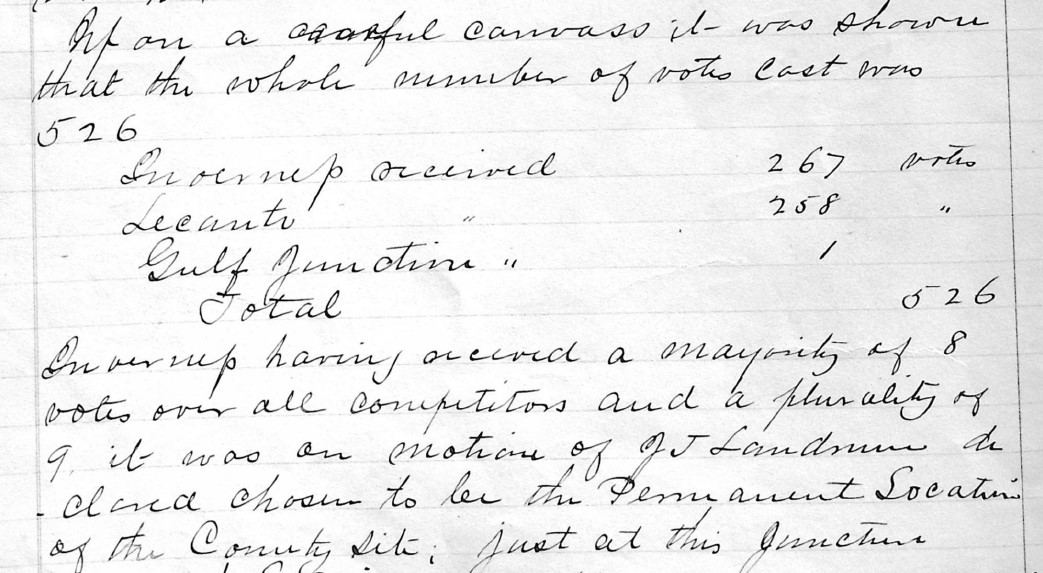 Upon a careful canvass it was shown
that the whole number of votes cast was
526
Inverness received 267 votes
Lecanto " 258 "
Gulf Junction " 1
Total 526
Inverness having received a mayority of 8
votes over all competitors and a plurality of
9, it was on motion of J T Landrum de
-clared chosen to be the Permanent Location
of the County site; just at this Junction